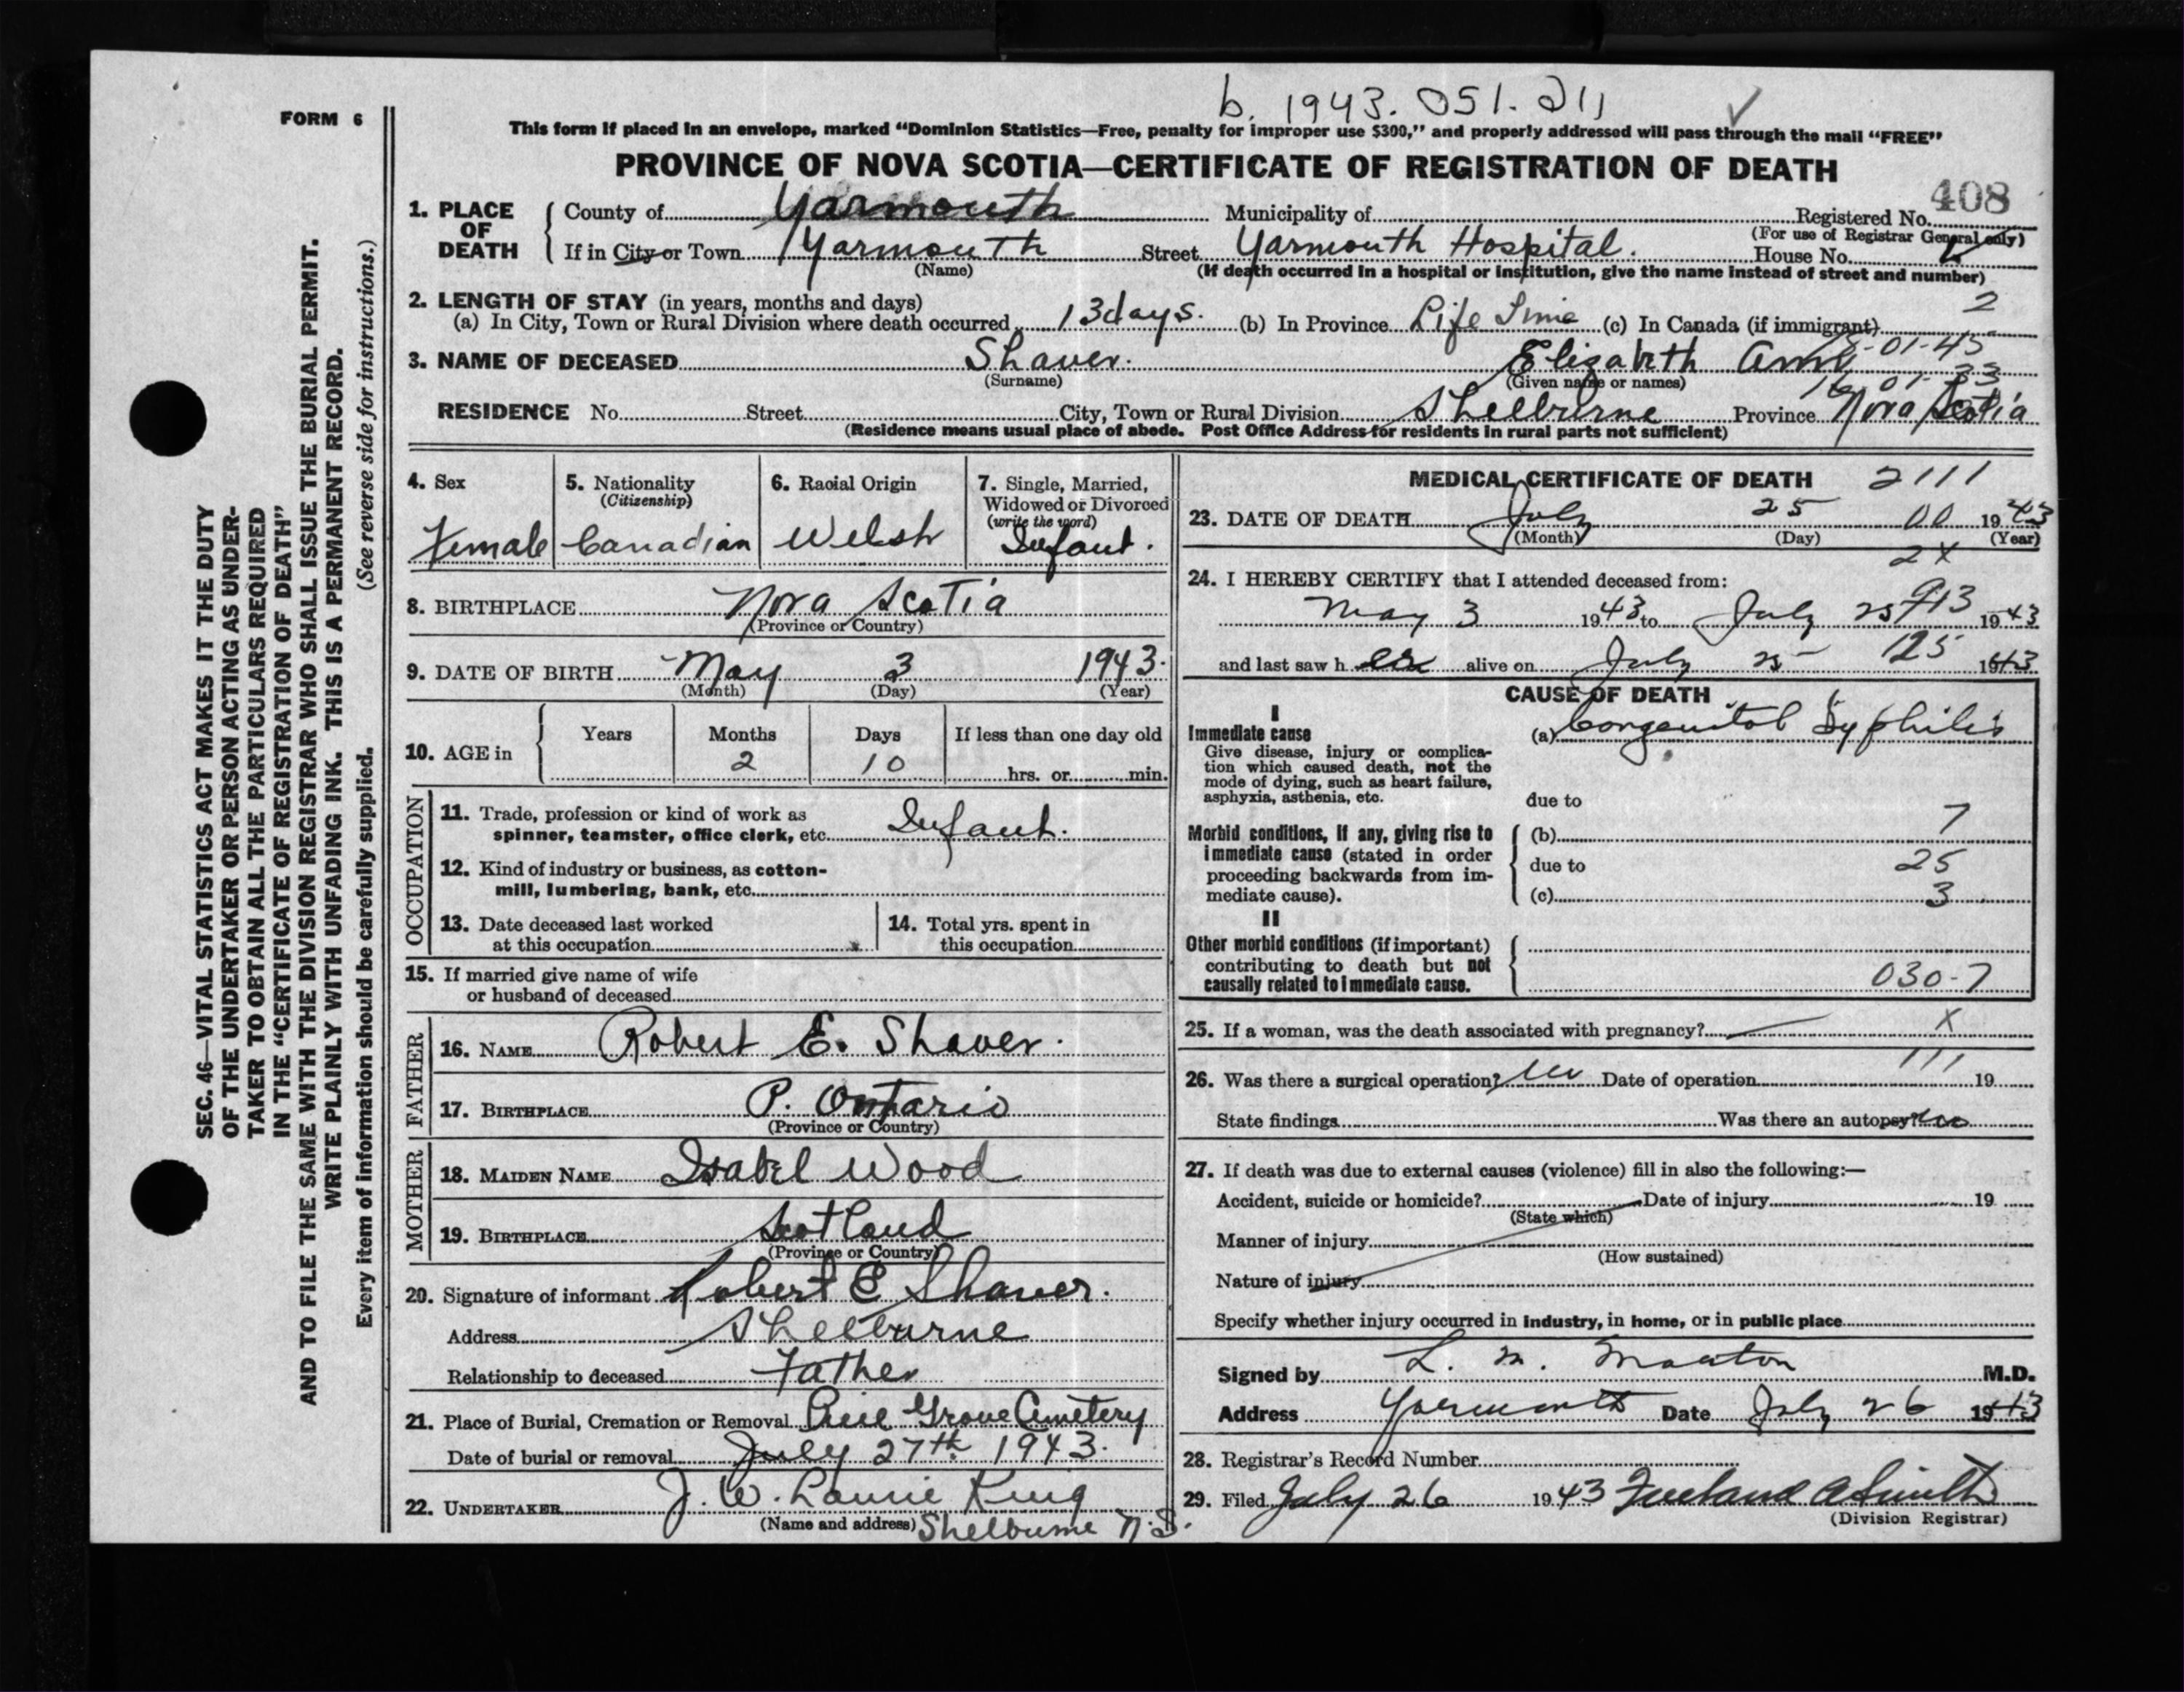 b. 1943. 051. 211
FORM 6
This form if placed in an envelope, marked “Dominion Statistics—Free, penalty for improper use $300,” and properly addressed will pass through the mail “FREE”
PROVINCE OF NOVA SCOTIA—CERTIFICATE OF REGISTRATION OF DEATH
408
1. PLACE OF DEATH County of Yarmouth Municipality of Registered No.
(For use of Registrar General only)
If in City or Town Yarmouth Street Yarmouth Hospital. House No.
(Name) (If death occurred in a hospital or institution, give the name instead of street and number)
2. LENGTH OF STAY (in years, months and days) 2
(a) In City, Town or Rural Division where death occurred 13 days. (b) In Province Life Time (c) In Canada (if immigrant)
3. NAME OF DECEASED Shaver. Elizabeth Ann -01-45
(Surname) (Given name or names) 16 01-33
RESIDENCE No. Street City, Town or Rural Division Shelburne Province Nova Scotia
(Residence means usual place of abode. Post Office Address for residents in rural parts not sufficient)
4. Sex 5. Nationality (Citizenship) 6. Racial Origin 7. Single, Married, Widowed or Divorced (write the word)
Female Canadian Welsh Infant.
8. BIRTHPLACE Nova Scotia
(Province or Country)
9. DATE OF BIRTH May 3 1943.
(Month) (Day) (Year)
10. AGE in Years Months Days If less than one day old
2 10 hrs. or min.
OCCUPATION
11. Trade, profession or kind of work as
spinner, teamster, office clerk, etc. Infant.
12. Kind of industry or business, as cotton-
mill, lumbering, bank, etc.
13. Date deceased last worked
at this occupation
14. Total yrs. spent in
this occupation
15. If married give name of wife
or husband of deceased
FATHER
16. NAME Robert E. Shaver.
17. BIRTHPLACE P. Ontario
(Province or Country)
MOTHER
18. MAIDEN NAME Isabel Wood
19. BIRTHPLACE Scotland
(Province or Country)
20. Signature of informant Robert E Shaver.
Address Shelburne
Relationship to deceased Father
21. Place of Burial, Cremation or Removal Pine Grove Cemetery
Date of burial or removal July 27th 1943.
22. UNDERTAKER J. W. Laurie King
(Name and address) Shelburne N.S.
MEDICAL CERTIFICATE OF DEATH 2111
23. DATE OF DEATH July 25 00 1943
(Month) (Day) (Year)
2X
24. I HEREBY CERTIFY that I attended deceased from:
913
May 3 1943 to July 25 1943
125
and last saw h er alive on July 25 1943
CAUSE OF DEATH
I
Immediate cause (a) Congenital Syphilis
Give disease, injury or complica-
tion which caused death, not the
mode of dying, such as heart failure,
asphyxia, asthenia, etc.
due to
7
Morbid conditions, if any, giving rise to (b)
immediate cause (stated in order
proceeding backwards from im-
mediate cause).
due to 25
(c) 3
II
Other morbid conditions (if important)
contributing to death but not
causally related to immediate cause.
030-7
25. If a woman, was the death associated with pregnancy? X
111
26. Was there a surgical operation? no Date of operation 19
State findings Was there an autopsy? no
27. If death was due to external causes (violence) fill in also the following:—
Accident, suicide or homicide? Date of injury 19
(State which)
Manner of injury
(How sustained)
Nature of injury
Specify whether injury occurred in industry, in home, or in public place
Signed by L. M. Morton M.D.
Address Yarmouth Date July 26 1943
28. Registrar's Record Number
29. Filed July 26 1943 A Smith
(Division Registrar)
SEC. 46—VITAL STATISTICS ACT MAKES IT THE DUTY
OF THE UNDERTAKER OR PERSON ACTING AS UNDER-
TAKER TO OBTAIN ALL THE PARTICULARS REQUIRED
IN THE “CERTIFICATE OF REGISTRATION OF DEATH”
AND TO FILE THE SAME WITH THE DIVISION REGISTRAR WHO SHALL ISSUE THE BURIAL PERMIT.
WRITE PLAINLY WITH UNFADING INK. THIS IS A PERMANENT RECORD.
Every item of information should be carefully supplied. (See reverse side for instructions.)